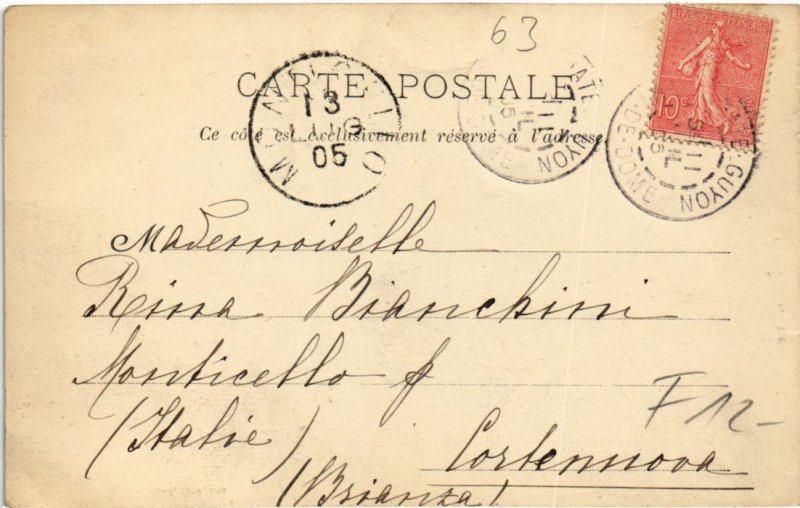 63
RÉPUBLIQUE FRANÇAISE
10c
CARTE POSTALE
13
LUG
05
Ce côté est exclusivement réservé à l'adresse
GUYON
-DE-DOME
Mademoiselle
Rina Bianchini
Monticello p
(Italie)
Cortennova
(Brianza)
F 12-